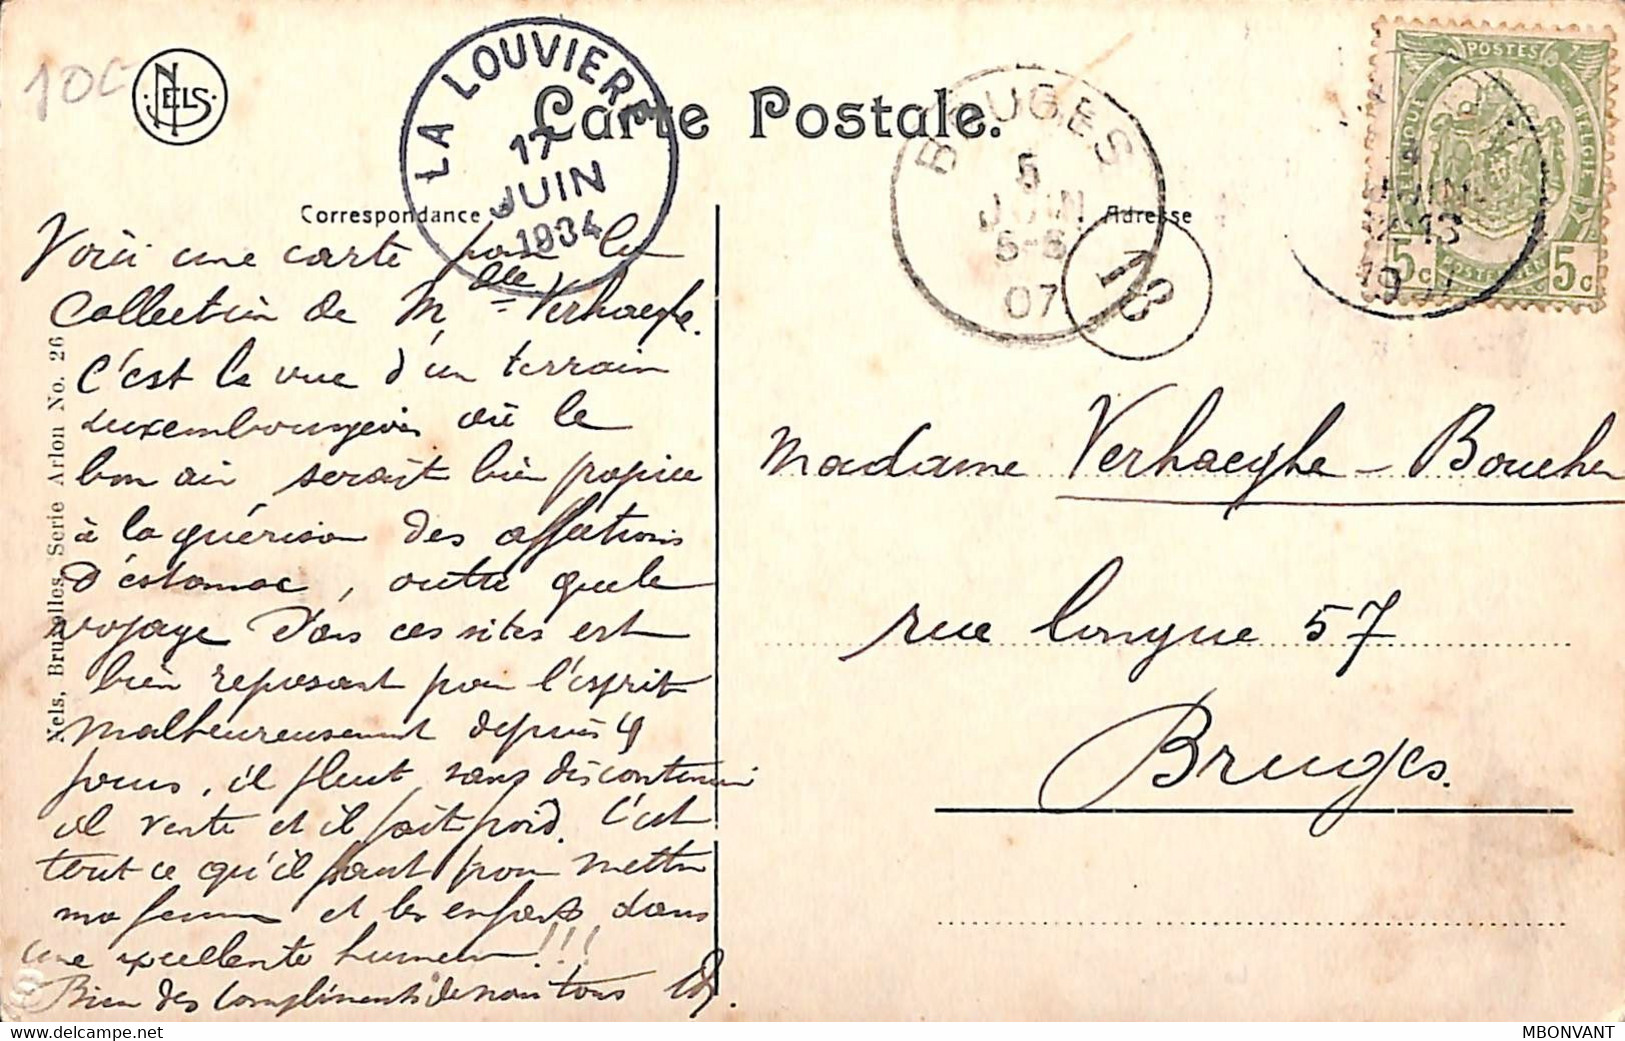 10c
NELS
LA LOUVIERE
17
JUIN
1934
Carte Postale.
BRUGES
5
JUIN
6-8
07
18
POSTES
BELGIQUE
BELGIE
5c
POSTERIJEN
5c
JUIN
12-13
Correspondance
Adresse
Voici une carte pour la
Collection de Mlle Verhaeghe.
C'est la vue d'un terrain
luxembourgeois où le
bon air serait bien propice
à la guérison des affections
d'estomac, outre que le
voyage dans ces sites est
bien reposant pour l'esprit
Malheureusement depuis 4
jours, il pleut sans discontinuer
il vente et il fait froid. C'est
tout ce qu'il faut pour mettre
ma femme et les enfants dans
une excellente humeur!!!
Bien des compliments de nous tous
Madame Verhaeghe-Boucher
rue longue 57
Bruges.
Nels, Bruxelles, Serie Arlon No. 26
MBONVANT